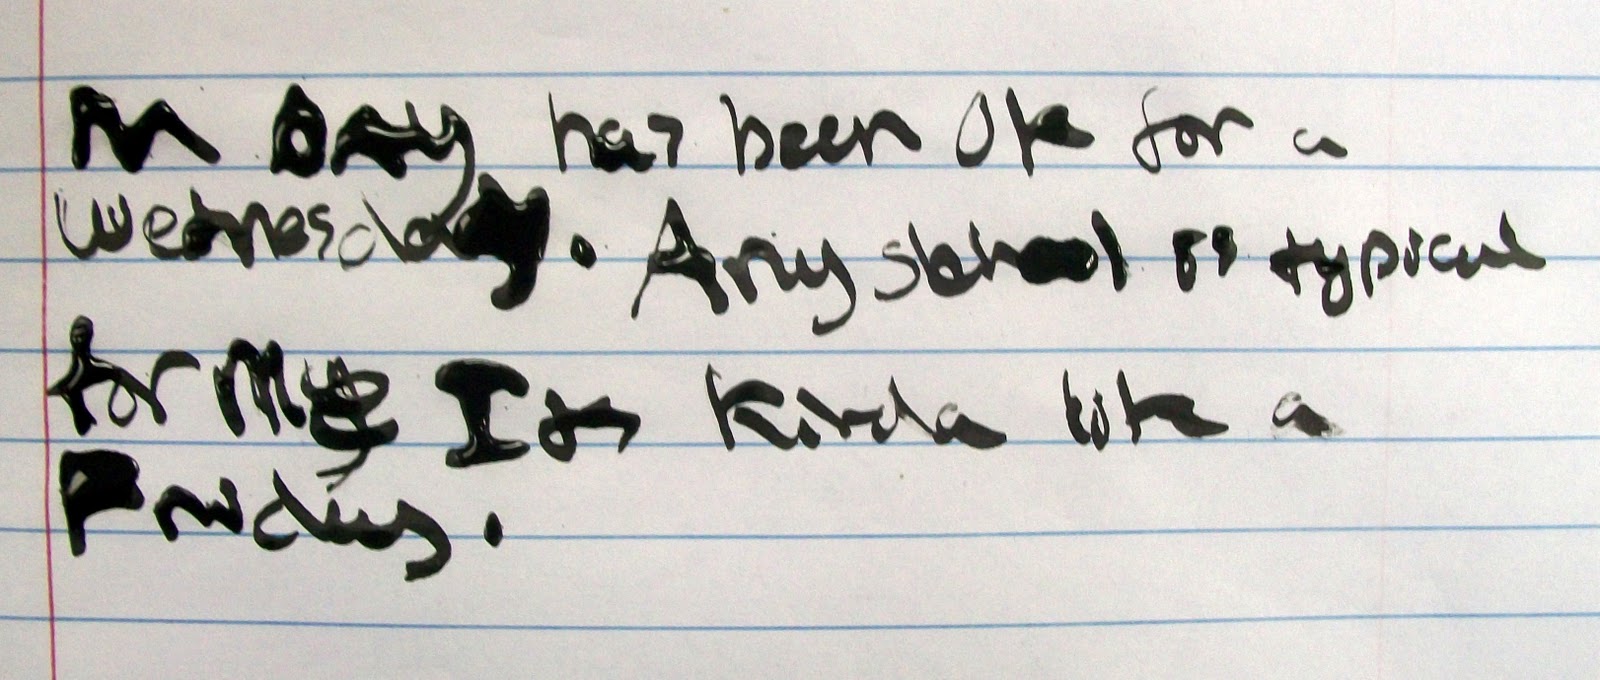 M Day has been Ok for a
Wednesday. Any school is typical
for Me I am Kinda like a
Friday.